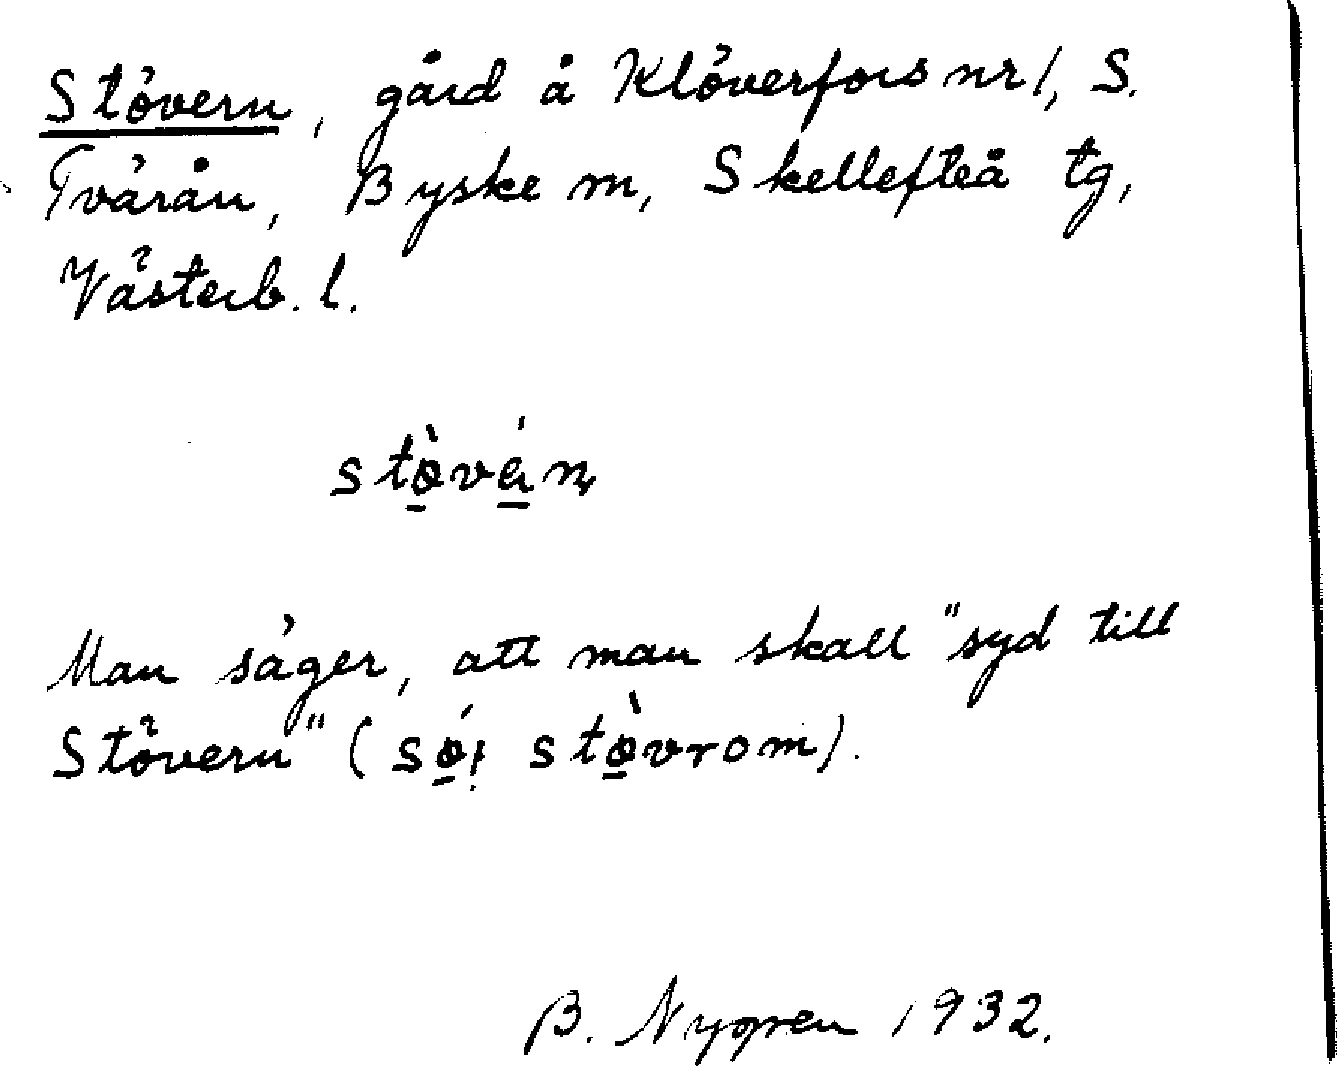 Stövern, gård å Klöverfors nr 1, S.
Tvärån, Byske sn, Skellefteå tg,
Västerb. l.
stø̀vά̣n
Man säger, att man skall "syd till
Stövern" (sǿį stø̀vrom).
B. Nygren 1932.